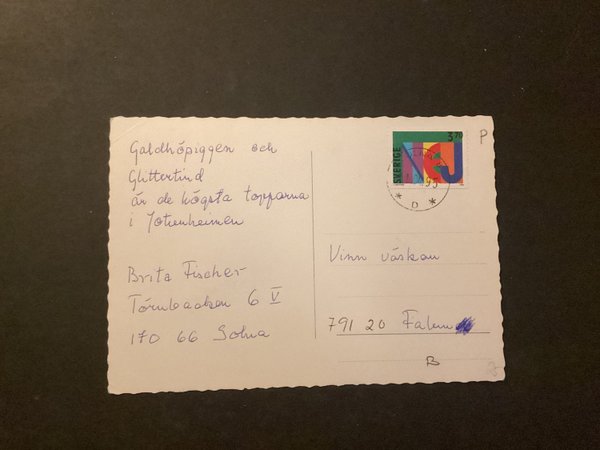 Galdhöpiggen och
Glittertind
är de högsta topparna
i Jotunheimen
Brita Fischer
6 V
170 66 Solna
3.70
SVERIGE
NEJ
95
* D *
P
Vinn väskan
791 20 Falun
B